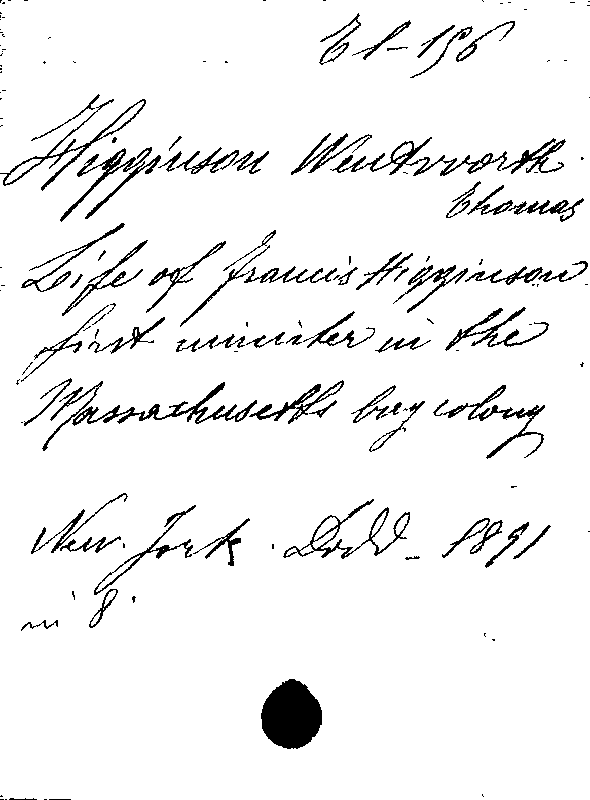 E1-156
Higginson Wentworth
Thomas
Life of Francis Higginson
first minister in the
Massachusetts bay colony
New. Jork. Dodd - 1891
in 8.